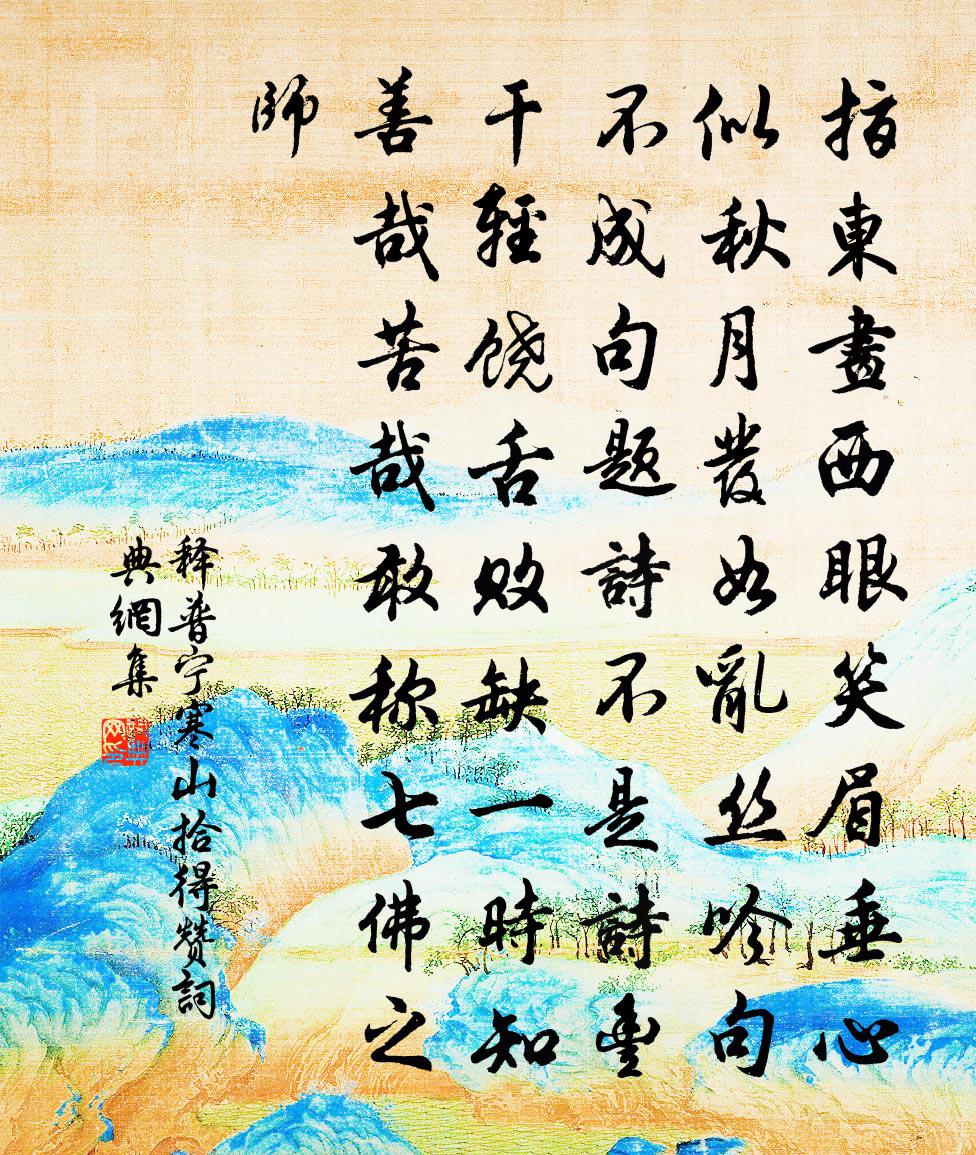 指東畫西眼笑眉垂心
似秋月發如亂丝吟句
不成句题詩不是詩豐
干輕饶舌败缺一時知
善哉苦哉敢称七佛之
師
释普宁寒山拾得赞詞
典網集